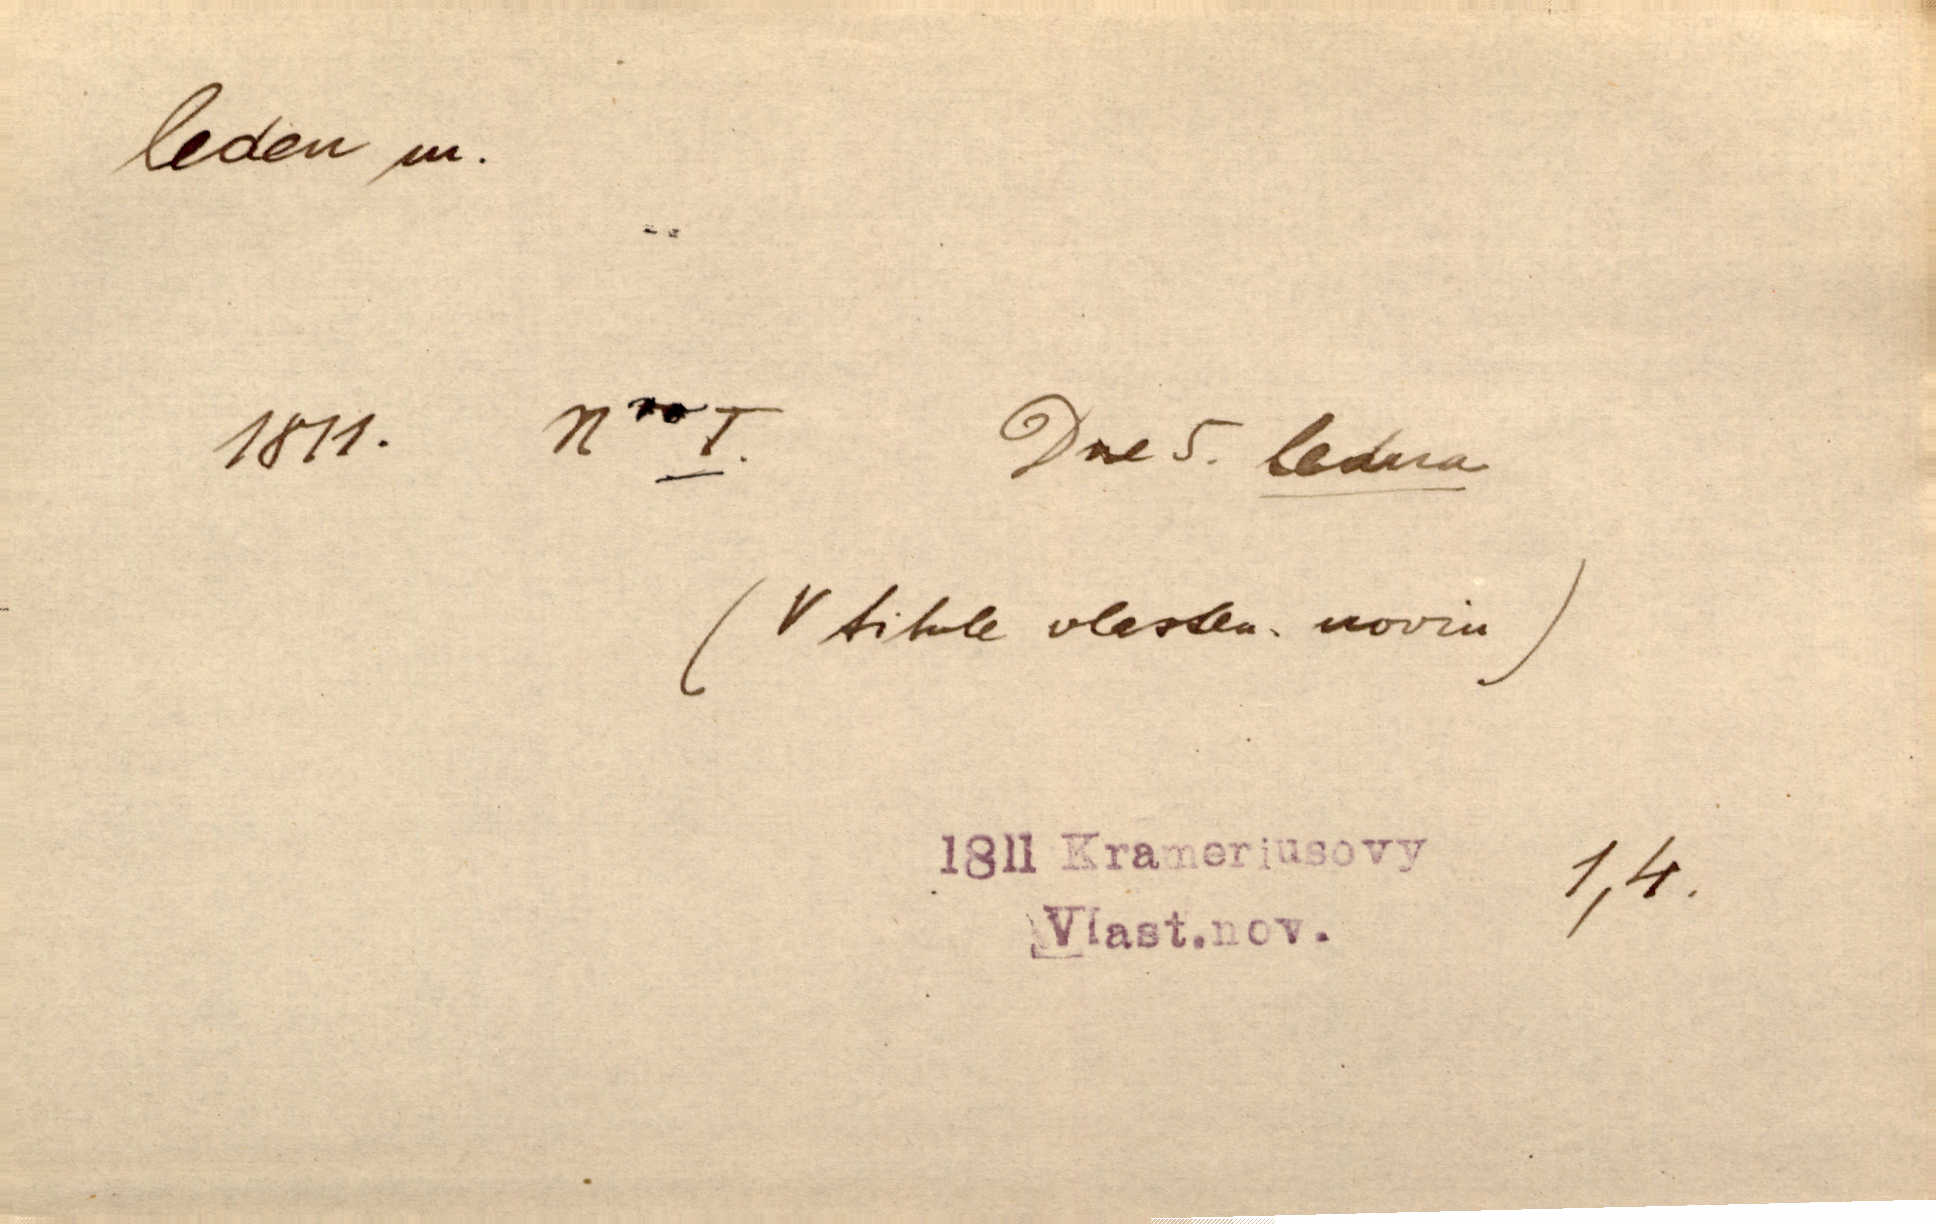 leden m.
1811. Nro I. Dne 5. ledna
(V titule vlasten. novin)
1811 Krameriusovy 1,4.
Vlast.nov.